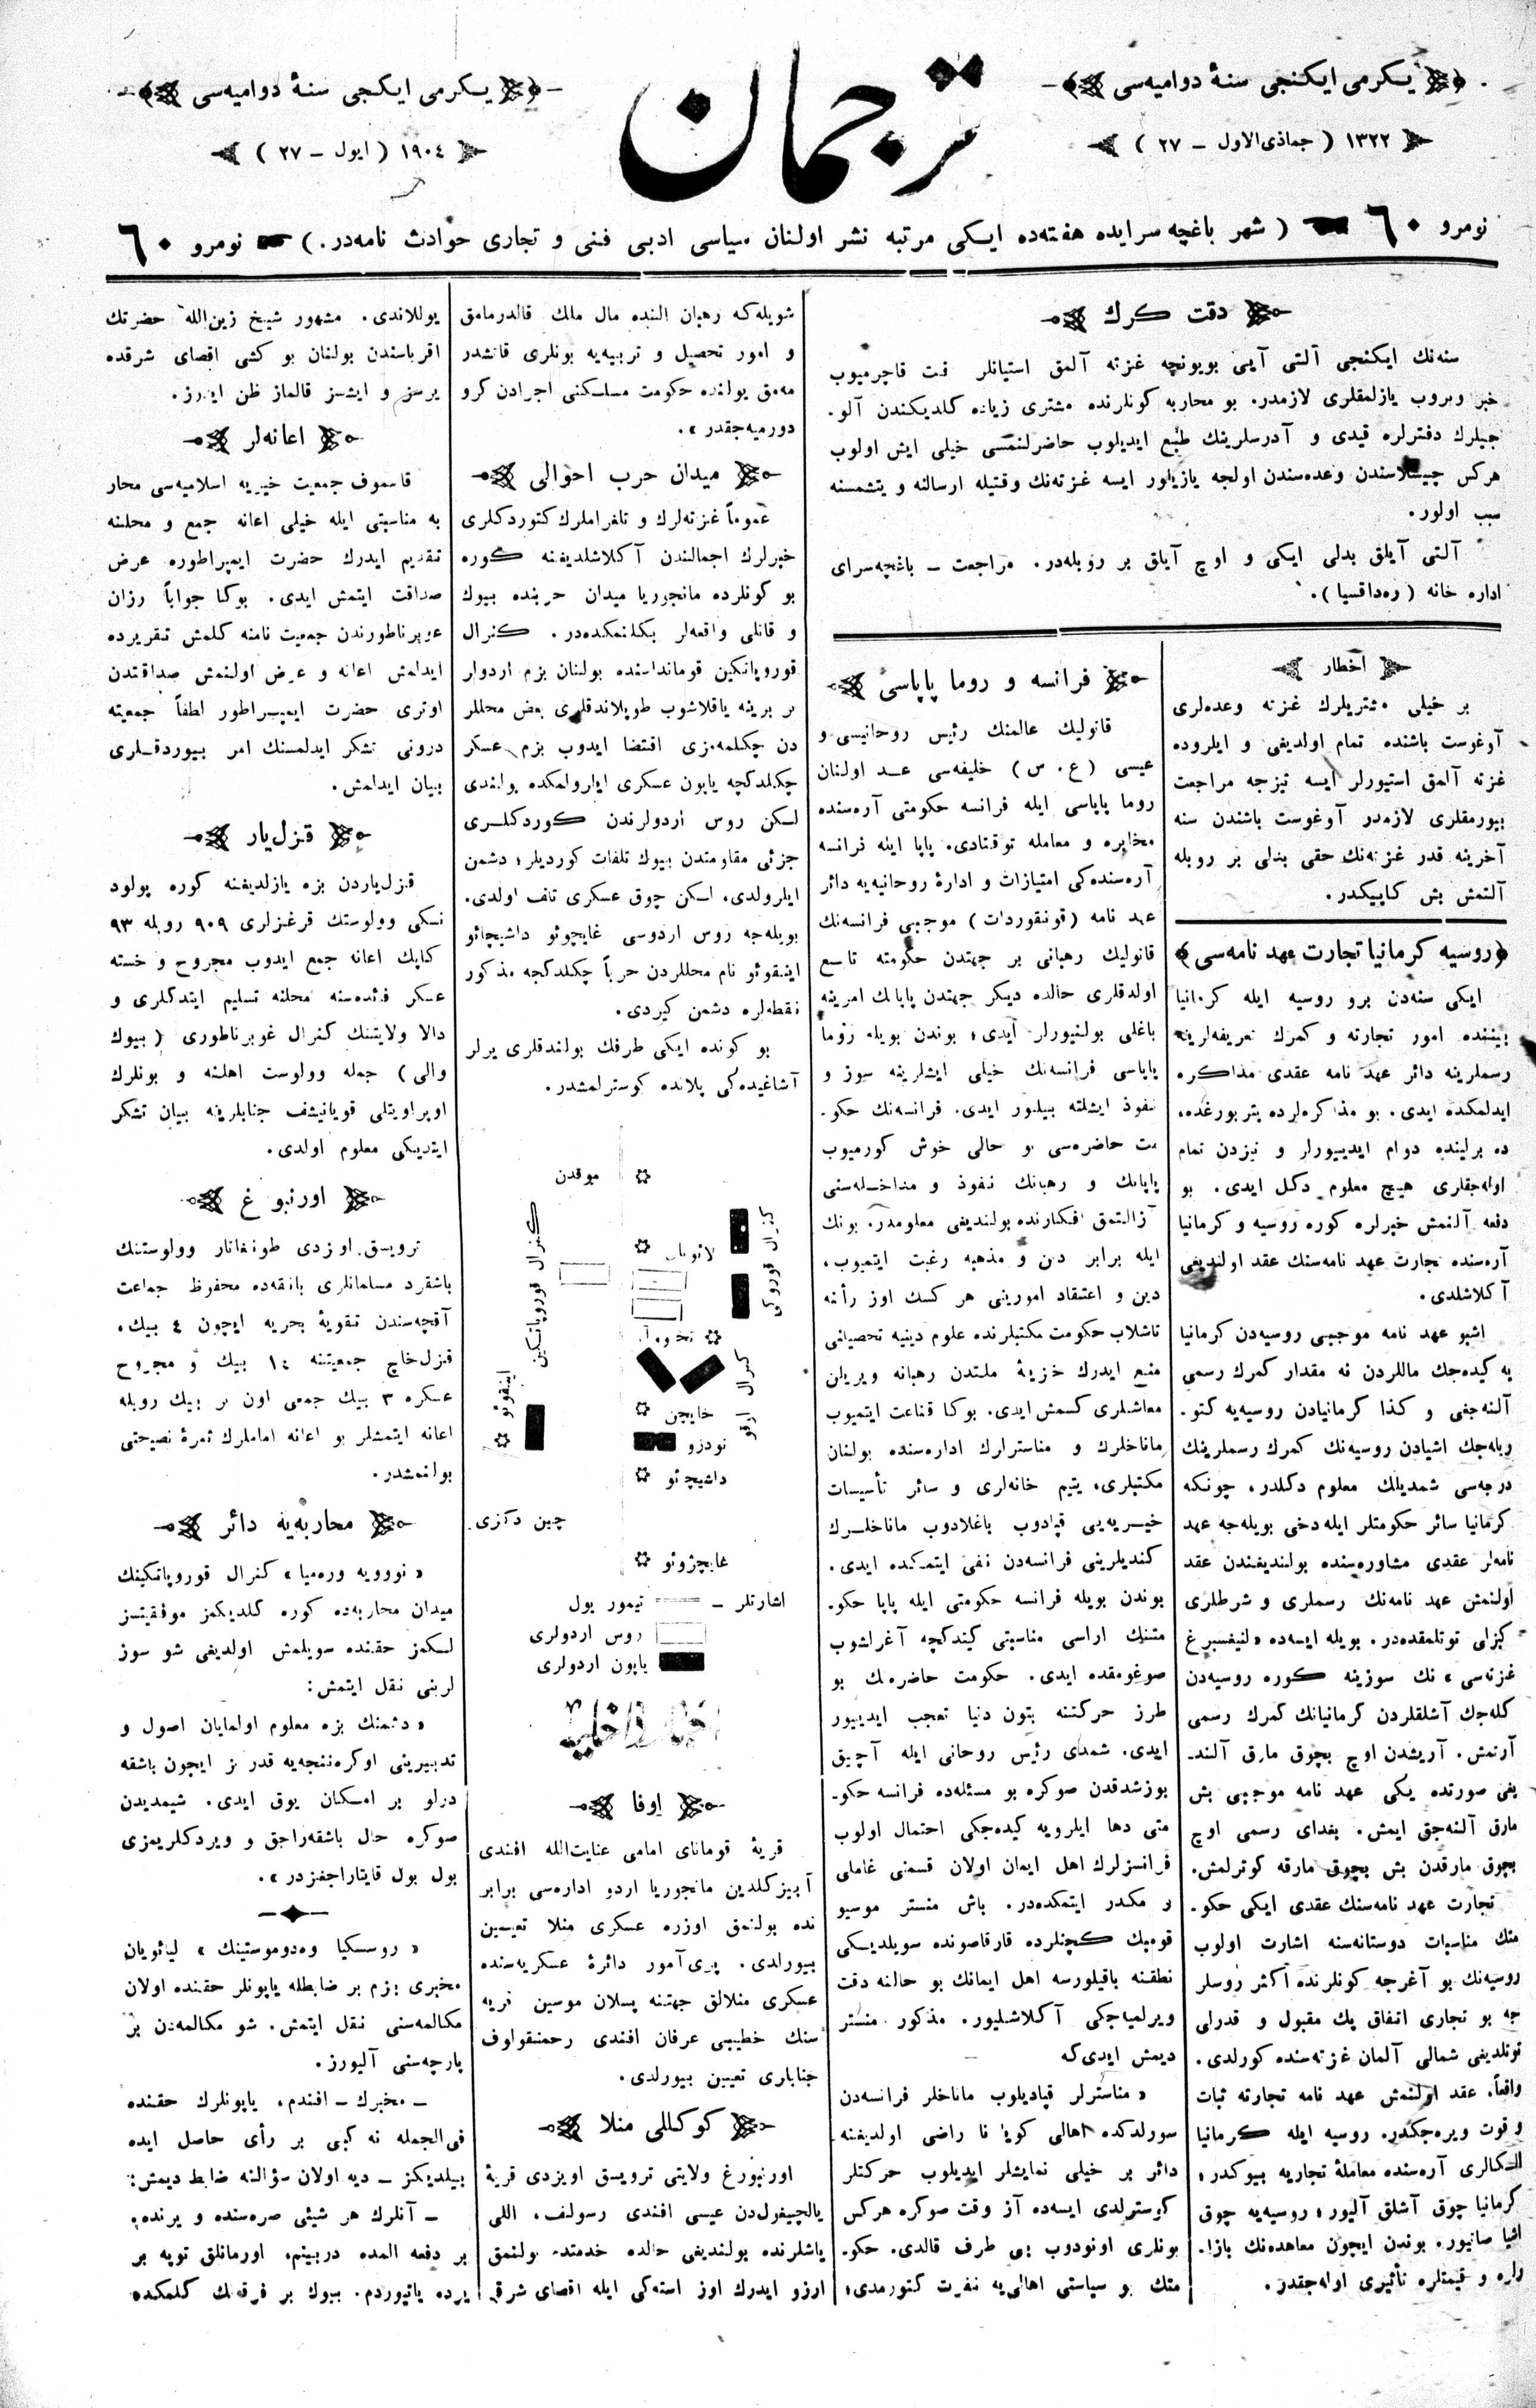 یكرمی ایكنجی سنۀ دوامیه‌سی
۱۳۲۲ ( جماذی‌الاول – ۲۷ )
ترجمان
یكرمی ایكنجی سنۀ دوامیه‌سی
۱۹۰٤ ( ایول – ۲۷ )
نومرو ٦۰ ( شهر باغچه سرایده هفته‌ده ایكی مرتبه نشر اولنان سیاسی ادبی فنی و تجاری حوادث نامه‌در. ) نومرو ٦۰
دقت كرك
سنه‌نك ایكنجی آلتی آیی بویونچه غزته آلمق استیانلر فت قاچرمیوب
خبر ویروب یازلمقلری لازمدر. بو محاربه كونلرنده مشتری زیاده گلدیكندن آلو-
جیلرك دفترلره قیدی و آدرسلرینك طبع ایدیلوب حاضرلنمسی خیلی ایش اولوب
هركس چیسلاسندن وعده‌سندن اولجه یازیلور ایسه غزته‌نك وقتیله ارسالنه و یتشمسنه
سبب اولور.
آلتی آیلق بدلی ایكی و اوچ آیلق بر روبله‌در. مراجعت – باغچه‌سرای
اداره خانه ( ره‌داقسیا ).
اخطار
بر خیلی مشتریلرك غزته وعده‌لری
آوغوست باشنده تمام اولدیغی و ایلروده
غزته آلمق استیورلر ایسه تیزجه مراجعت
بیورمقلری لازمدر آوغوست باشندن سنه
آخرینه قدر غزته‌نك حقی بدلی بر روبله
آلتمش بش كاپیكدر.
﴿روسیه كرمانیا تجارت عهد نامه‌سی﴾
ایكی سنه‌دن برو روسیه ایله كرمانیا
بیننده امور تجارته و كمرك تعریفه‌لرینه
رسملرینه دائر عهد نامه عقدی مذاكره
ایدلمكده ایدی. بو مذاكره‌لرده پتربورغده،
ده برلینده دوام ایدییورلر و نیزدن تمام
اوله‌جقلری هیچ معلوم دكل ایدی. بو
دفعه آلنمش خبرلره كوره روسیه و كرمانیا
آره‌سنده تجارت عهد نامه‌سنك عقد اولندیغی
آكلاشلدی.
اشبو عهد نامه موجبی روسیه‌دن كرمانیا
یه كیده‌جك ماللردن نه مقدار كمرك رسمی
آلنه‌جغی و كذا كرمانیادن روسیه‌یه كتو-
ریله‌جك اشیادن روسیه‌نك كمرك رسملرینك
درجه‌سی شمدیلك معلوم دكلدر، چونكه
كرمانیا سائر حكومتلر ایله دخی بویله‌جه عهد
نامه‌لر عقدی مشاوره‌سنده بولندیغندن عقد
اولنمش عهد نامه‌نك رسملری و شرطلری
كیزلی توتلمقده‌در. بویله ایسه‌ده «لنیفسبرغ
غزته‌سی» نك سوزینه كوره روسیه‌دن
كله‌جك آشلقلردن كرمانیانك كمرك رسمی
آرتمش. آریشدن اوچ بچوق مارق آلند-
یغی صورتده یكی عهد نامه موجبی بش
مارق آلنه‌جق ایمش. بغدای رسمی اوچ
بچوق مارقدن بش بچوق مارقه كوترلمش.
تجارت عهد نامه‌سنك عقدی ایكی حكو-
متك مناسبات دوستانه‌سنه اشارت اولوب
روسیه‌نك بو آغرجه كونلرنده اكثر روسلر
جه بو تجاری اتفاق پك مقبول و قدرلی
تونلدیغی شمالی آلمان غزته‌سنده كورلدی.
واقعاً، عقد اولنمش عهد نامه تجارته ثبات
و قوت ویره‌جكدر. روسیه ایله كرمانیا
آره‌سنده معاملۀ تجاریه بیوكدر؛
كرمانیا چوق آشلق آلیور؛ روسیه‌یه چوق
اشیا صاتیور. بوندن ایچون معاهده‌نك بازا-
رلره و قیمتلره تأثیری اوله‌جقدر.
فرانسه و روما پاپاسی
قاتولیك عالمنك رئیس روحانیسی و
عیسی (ع. س) خلیفه‌سی عد اولنان
روما پاپاسی ایله فرانسه حكومتی آره‌سنده
مخابره و معامله توقتادی. پاپا ایله فرانسه
آره‌سنده‌كی امتیازات و ادارۀ روحانیه‌یه دائر
عهد نامه (قونقوردات) موجبی فرانسه‌نك
قاتولیك رهبانی بر جهتدن حكومته تابع
اولدقلری حالده دیكر جهتدن پاپانك امرینه
باغلی بولنیورلر ایدی؛ بوندن بویله روما
پاپاسی فرانسه‌نك خیلی ایشلرینه سوز و
نفوذ ایشلته بیلور ایدی. فرانسه‌نك حكو-
مت حاضره‌سی بو حالی خوش كورمیوب
پاپانك و رهبانك نفوذ و مداخله‌سنی
آزالتمق افكارنده بولندیغی معلومدر. بونك
ایله برابر دین و مذهبه رغبت ایتمیوب،
دین و اعتقاد امورینی هر كسك اوز رأنه
تاشلاب حكومت مكتبلرنده علوم دینیه تحصیلنی
منع ایدرك خزینۀ ملتدن رهبانه ویریلن
معاشلری كسمش ایدی. بوكا قناعت ایتمیوب
ماناخلرك و مناسترلرك اداره‌سنده بولنان
مكتبلری، یتیم خانه‌لری و سائر تأسیسات
خیریه‌یی قپادوب باغلادوب ماناخلرك
كندیلرینی فرانسه‌دن نفی ایتمكده ایدی.
بوندن بویله فرانسه حكومتی ایله پاپا حكو-
متنك اراسی مناسبتی كیتدكچه آغرلشوب
صوغومقده ایدی. حكومت حاضره‌نك بو
طرز حركتنه بتون دنیا تعجب ایدییور
ایدی. شمدی رئیس روحانی ایله آچیق
بوزشدقدن صوكره بو مسئله‌ده فرانسه حكو-
متی دها ایلرویه كیده‌جكی احتمال اولوب
فرانسزلرك اهل ایمان اولان قسمنی غاملی
و مكدر ایتمكده‌در. باش منستر موسیو
قومبك كچنلرده قارقاصونده سویلدیكی
نطقنه باقیلورسه اهل ایمانك بو حالنه دقت
ویرلمیه‌جكی آكلاشلیور. مذكور منستر
دیمش ایدی‌كه
« مناسترلر قپادیلوب ماناخلر فرانسه‌دن
سورلدكده اهالی كویا نا راضی اولدیغنه
دائر بر خیلی نمایشلر ایدیلوب حركتلر
كوسترلدی ایسه‌ده آز وقت صوكره هركس
بونلری اونودوب بی طرف قالدی. حكو-
متك بو سیاستی اهالی‌یه نفرت كتورمدی؛
شویله‌كه رهبان النده مال ملك قالدرمامق
و امور تحصیل و تربیه‌یه بونلری قاتشدر
مه‌مق یولنده حكومت مسلكنی اجرادن كرو
دورمیه‌جقدر ».
میدان حرب احوالی
عموماً غزته‌لرك و تلغراملرك كتوردكلری
خبرلرك اجمالندن آكلاشلدیغنه كوره
بو كونلرده مانجوریا میدان حربنده بیوك
و قانلی واقعه‌لر بكلنمكده‌در. كنرال
قوروپاتكین قوماندا‌سنده بولنان بزم اردولر
بر برینه یاقلاشوب طوپلاندقلری بعض محللر
دن چكلمه‌مزی اقتضا ایدوب بزم عسكر
چكلدكچه یاپون عسكری ایلرولمكده بولندی
لكن روس اردولرندن كوردكلری
جزئی مقاومتدن بیوك تلفات كوردیلر؛ دشمن
ایلرولدی، لكن چوق عسكری تلف اولدی.
بویله‌جه روس اردوسی غایچوئو داشیچائو
اینقوئو نام محللردن حرباً چكلدكجه مذكور
نقطه‌لره دشمن كیردی.
بو كونده ایكی طرفك بولندقلری یرلر
آشاغیده‌كی پلانده كوسترلمشدر.
موقدن
كنرال قوروپاتكین
كنرال قوروكی
كنرال اوقو
اینقوئو
خایچن
نودزو
داشیچئو
چین دكزی
غایچژوئو
اشارتلر – تیمور یول
روس اردولری
یاپون اردولری
اخبار داخلیه
اوفا
قریۀ قومانای امامی عنایت‌الله افندی
آبیزكلدین مانجوریا اردو اداره‌سی برابر
نده بولنمق اوزره عسكری منلا تعیین
بیورلدی. پری‌آمور دائرۀ عسكریه‌سنده
عسكری منلالق جهتنه پسلان موسین قریه
سنك خطیبی عرفان افندی رحمنقولوف
جنابلری تعیین بیورلدی.
كوكللی منلا
اورنبورغ ولایتی ترویسق اویزدی قریۀ
یالچیغول‌دن عیسی افندی رسولف، اللی
یاشلرنده بولندیغی حالده خدمتده بولنمق
ارزو ایدرك اوز استه‌كی ایله اقصای شرقه
یوللاندی. مشهور شیخ زین‌الله حضرتك
اقرباسندن بولنان بو كشی اقصای شرقده
یرسز و ایشسز قالماز ظن ایدرز.
اعانه‌لر
قاسموف جمعیت خیریه اسلامیه‌سی محار
به مناسبتی ایله خیلی اعانه جمع و محلنه
تقدیم ایدرك حضرت ایمپراطوره عرض
صداقت ایتمش ایدی. بوكا جواباً رزان
غوبرناطورندن جمعیت نامنه كلمش تقریرده
ایدلمش اعانه و عرض اولنمش صداقتدن
اوتری حضرت ایمپراطور لطفاً جمعیته
درونی تشكر ایدلمسنك امر بیوردقلری
بیان ایدلمش.
قزل‌یار
قزل‌یاردن بزه یازلدیغنه كوره پولود
نسكی وولوستك قرغزلری ۹۰۹ روبله ۹۳
كاپك اعانه جمع ایدوب مجروح و خسته
عسكر فائده‌سنه محلنه تسلیم ایتدكلری و
دالا ولایتنك كنرال غوبرناطوری (بیوك
والی) جمله وولوست اهلنه و بونلرك
اوپراویتلی قویانیشف جنابلرینه بیان تشكر
ایتدیكی معلوم اولدی.
اورنبورغ
ترویسق اوزدی طونغاتار وولوستنك
باشقرد مسلمانلری بانقه‌ده محفوظ جماعت
آقچه‌سندن تقویۀ بحریه ایچون ٤ بیك،
قزل‌خاچ جمعیتنه ۱٤ بیك و مجروح
عسكره ۳ بیك جمعی اون بر بیك روبله
اعانه ایتمشلر بو اعانه اماملرك ثمرۀ نصیحتی
بولنمشدر.
محاربه‌یه دائر
« نوویه وره‌میا » كنرال قوروپاتكینك
میدان محاربه‌ده كوره گلدیكمز موفقیتسز
لكمز حقنده سویلمش اولدیغی شو سوز
لرینی نقل ایتمش:
« دشمنك بزه معلوم اولمایان اصول و
تدبیرینی اوكره‌ننجه‌یه قدر بز ایچون باشقه
درلو بر امكان یوق ایدی. شیمدیدن
صوكره حال باشقه‌راجق و ویردكلریمزی
بول بول قایتاراجغز‌در ».
« روسسكیا وه‌دوموستینك » لیائویان
مخبری بزم بر ضابطله یاپونلر حقنده اولان
مكالمه‌سنی نقل ایتمش. شو مكالمه‌دن بر
پارچه‌سنی آلیورز.
– مخبرك – افندم، یاپونلرك حقنده
فی‌الجمله نه كبی بر رأی حاصل ایده
بیلدیكز – دیه اولان سؤالنه ضابط دیمش:
– آنلرك هر شیئی صره‌سنده و یرنده.
بر دفعه المده دربینم، اورمانلق توپه بر
یرده یاتیوردم. بیوك بر فرقه‌نك گلمكده